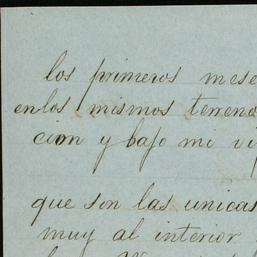 los primeros mese
en los mismos terreno
cion y bajo mi vi
que son las unicas
muy al interior